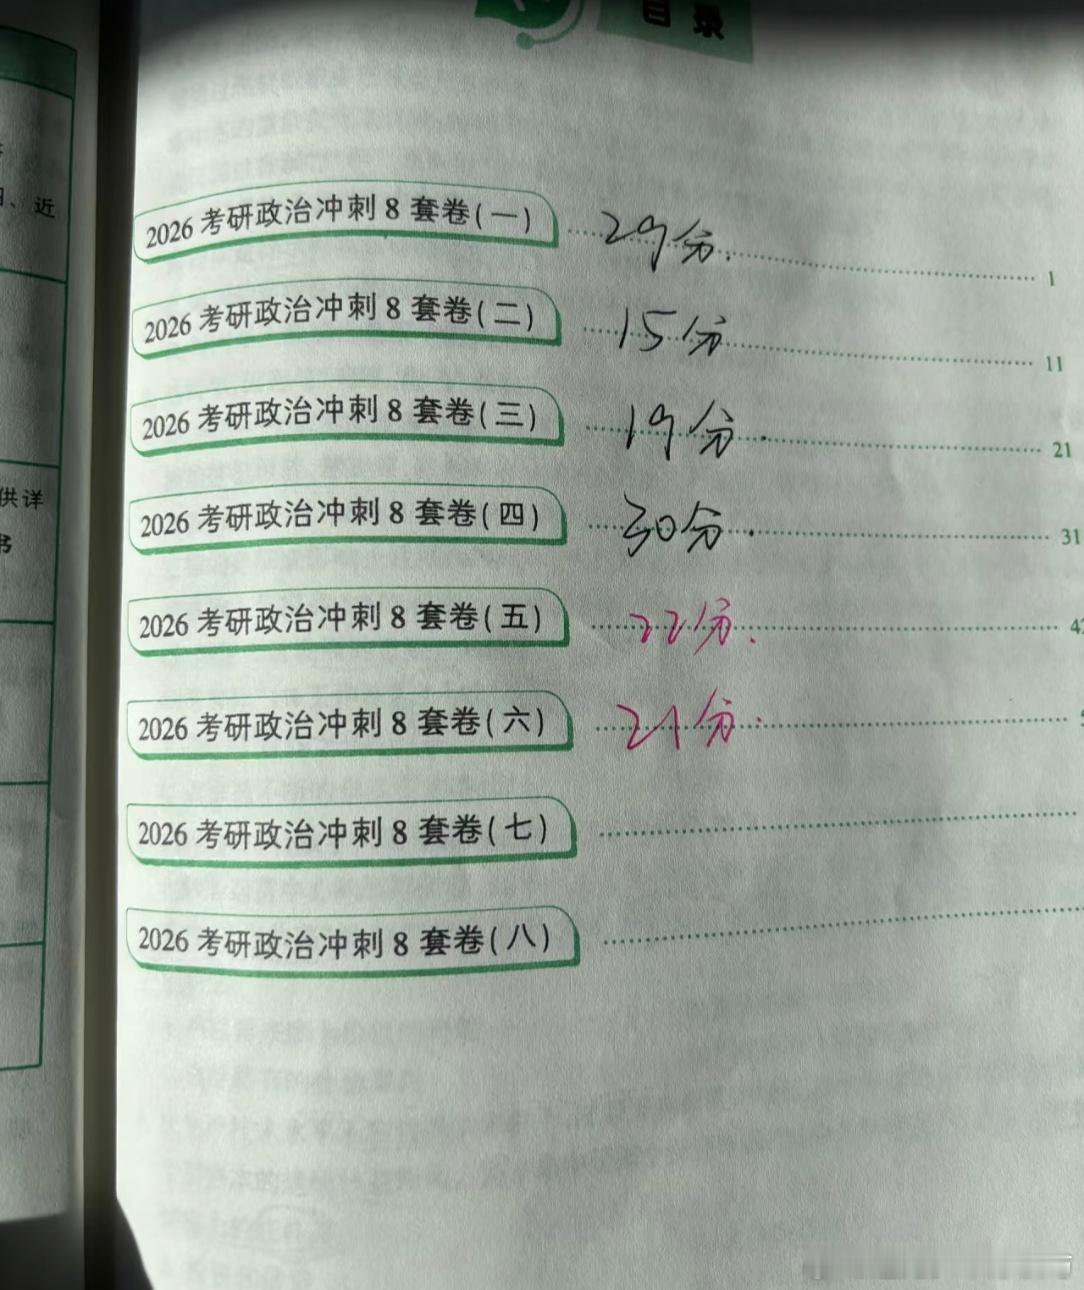 目录
、近
供详
书
2026 考研政治冲刺 8 套卷(一) 29分. 1
2026 考研政治冲刺 8 套卷(二) 15分 11
2026 考研政治冲刺 8 套卷(三) 19分. 21
2026 考研政治冲刺 8 套卷(四) 30分. 31
2026 考研政治冲刺 8 套卷(五) 22分. 4
2026 考研政治冲刺 8 套卷(六) 21分.
2026 考研政治冲刺 8 套卷(七)
2026 考研政治冲刺 8 套卷(八)